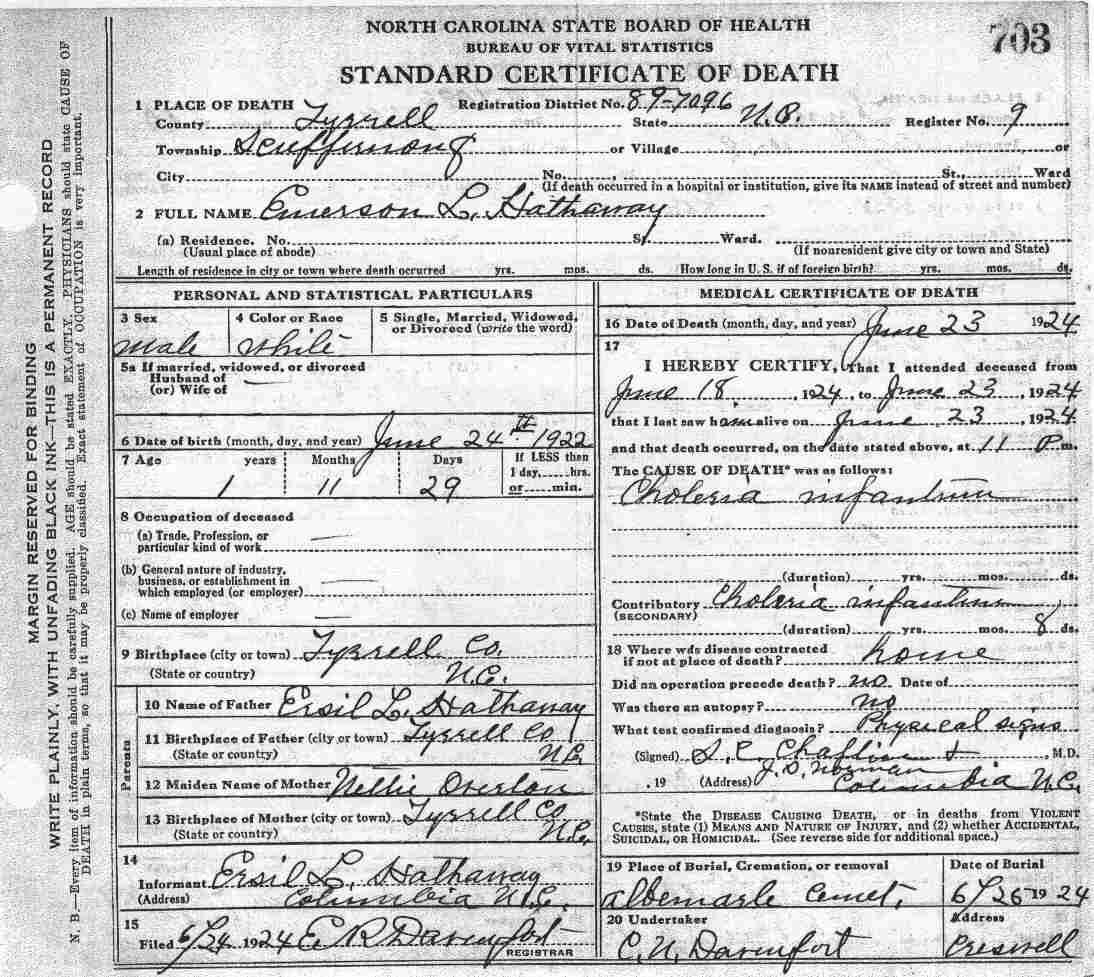 NORTH CAROLINA STATE BOARD OF HEALTH
BUREAU OF VITAL STATISTICS
703
STANDARD CERTIFICATE OF DEATH
1 PLACE OF DEATH Registration District No. 89-7096
County Tyrrell State N.C. Register No. 9
Township Scuppernong or Village or
City No. St., Ward
(If death occurred in a hospital or institution, give its NAME instead of street and number)
2 FULL NAME Emerson L. Hathaway
(a) Residence. No. St. Ward.
(Usual place of abode) (If nonresident give city or town and State)
Length of residence in city or town where death occurred yrs. mos. ds. How long in U.S. if of foreign birth? yrs. mos. ds.
PERSONAL AND STATISTICAL PARTICULARS
3 Sex 4 Color or Race 5 Single, Married, Widowed, or Divorced (write the word)
male white
5a If married, widowed, or divorced
Husband of —
(or) Wife of
6 Date of birth (month, day, and year) June 24th 1922
7 Age years Months Days If LESS than
1 day, hrs.
1 11 29 or min.
8 Occupation of deceased
(a) Trade, Profession, or
particular kind of work —
(b) General nature of industry,
business, or establishment in
which employed (or employer) —
(c) Name of employer —
9 Birthplace (city or town) Tyrrell Co.
(State or country) N.C.
Parents
10 Name of Father Ersil L. Hathaway
11 Birthplace of Father (city or town) Tyrrell Co
(State or country) N.C.
12 Maiden Name of Mother Nellie Overton
13 Birthplace of Mother (city or town) Tyrrell Co
(State or country) N.C.
14
Informant Ersil L. Hathaway
(Address) Columbia N.C.
15
Filed 6/24 1924 E R Davenport
REGISTRAR
MEDICAL CERTIFICATE OF DEATH
16 Date of Death (month, day, and year) June 23 1924
17
I HEREBY CERTIFY, That I attended deceased from
June 18, 1924, to June 23, 1924
that I last saw him alive on June 23, 1924
and that death occurred, on the date stated above, at 11 P m.
The CAUSE OF DEATH* was as follows:
Choleria infantum
(duration) yrs. mos. ds.
Contributory Choleria infantum
(SECONDARY)
(duration) yrs. mos. 8 ds.
18 Where was disease contracted
if not at place of death? home
Did an operation precede death? no Date of
Was there an autopsy? no
What test confirmed diagnosis? Physical signs
(Signed) S. C. Chaflin + M.D.
J. D. Norman
, 19 (Address) Columbia N.C.
*State the DISEASE CAUSING DEATH, or in deaths from VIOLENT
CAUSES, state (1) MEANS AND NATURE OF INJURY, and (2) whether ACCIDENTAL,
SUICIDAL, OR HOMICIDAL. (See reverse side for additional space.)
19 Place of Burial, Cremation, or removal Date of Burial
albemarle Cemet, 6/26 1924
20 Undertaker Address
C. N. Davenfort Creswell
MARGIN RESERVED FOR BINDING
WRITE PLAINLY, WITH UNFADING BLACK INK—THIS IS A PERMANENT RECORD
N. B.—Every item of information should be carefully supplied. AGE should be stated EXACTLY. PHYSICIANS should state CAUSE OF
DEATH in plain terms, so that it may be properly classified. Exact statement of OCCUPATION is very important.